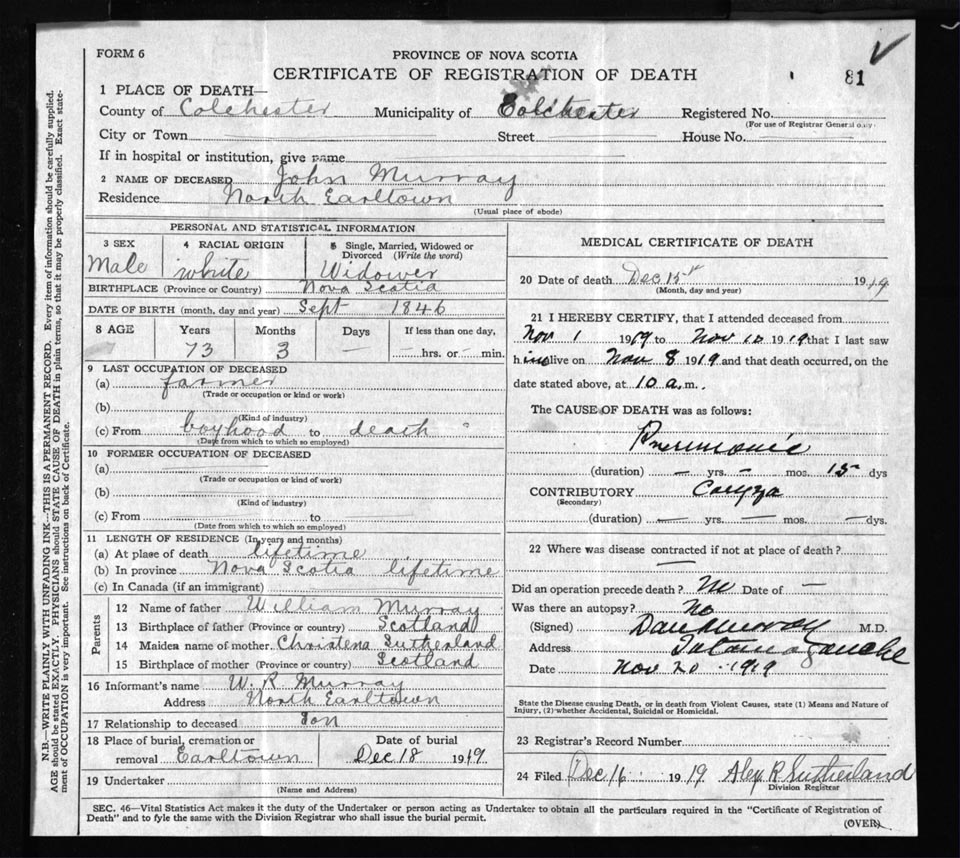 FORM 6
PROVINCE OF NOVA SCOTIA
CERTIFICATE OF REGISTRATION OF DEATH
81
1 PLACE OF DEATH—
County of Colchester Municipality of Colchester Registered No.
(For use of Registrar General only)
City or Town Street House No.
If in hospital or institution, give name
2 NAME OF DECEASED John Murray
Residence North Earltown
(Usual place of abode)
PERSONAL AND STATISTICAL INFORMATION
3 SEX 4 RACIAL ORIGIN 5 Single, Married, Widowed or Divorced (Write the word)
Male white Widower
BIRTHPLACE (Province or Country) Nova Scotia
DATE OF BIRTH (month, day and year) Sept 1846
8 AGE Years Months Days If less than one day,
73 3 — — hrs. or — min.
9 LAST OCCUPATION OF DECEASED
(a) farmer
(Trade or occupation or kind or work)
(b)
(Kind of industry)
(c) From boyhood to death
(Date from which to which so employed)
10 FORMER OCCUPATION OF DECEASED
(a)
(Trade or occupation or kind of work)
(b)
(Kind of industry)
(c) From to
(Date from which to which so employed)
11 LENGTH OF RESIDENCE (In years and months)
(a) At place of death lifetime
(b) In province Nova Scotia lifetime
(c) In Canada (if an immigrant)
Parents
12 Name of father William Murray
13 Birthplace of father (Province or country) Scotland
14 Maiden name of mother Christena Sutherland
15 Birthplace of mother (Province or country) Scotland
16 Informant's name W. R. Murray
Address North Earltown
17 Relationship to deceased Son
18 Place of burial, cremation or Date of burial
removal Earltown Dec 18 1919
19 Undertaker
(Name and Address)
MEDICAL CERTIFICATE OF DEATH
20 Date of death Dec 15th 1919
(Month, day and year)
21 I HEREBY CERTIFY, that I attended deceased from
Nov 1 1919 to Nov 10 1919 that I last saw
him alive on Nov 8 1919 and that death occurred, on the
date stated above, at 10 a.m.
The CAUSE OF DEATH was as follows:
Pneumonia
(duration) — yrs. — mos. 15 dys
CONTRIBUTORY Coryza
(Secondary)
(duration) — yrs. — mos. — dys.
22 Where was disease contracted if not at place of death?
—
Did an operation precede death? No Date of —
Was there an autopsy? No
(Signed) Dan Murray M.D.
Address Tatamagouche
Date Nov 20 1919
State the Disease causing Death, or in death from Violent Causes, state (1) Means and Nature of
Injury, (2) whether Accidental, Suicidal or Homicidal.
23 Registrar's Record Number
24 Filed Dec 16 1919 Alex R Sutherland
Division Registrar
SEC. 46—Vital Statistics Act makes it the duty of the Undertaker or person acting as Undertaker to obtain all the particulars required in the "Certificate of Registration of
Death" and to fyle the same with the Division Registrar who shall issue the burial permit.
(OVER)
N.B.—WRITE PLAINLY WITH UNFADING INK—THIS IS A PERMANENT RECORD. Every item of information should be carefully supplied.
AGE should be stated EXACTLY. PHYSICIANS should STATE CAUSE OF DEATH in plain terms, so that it may be properly classified. Exact state-
ment of OCCUPATION is very important. See instructions on back of Certificate.